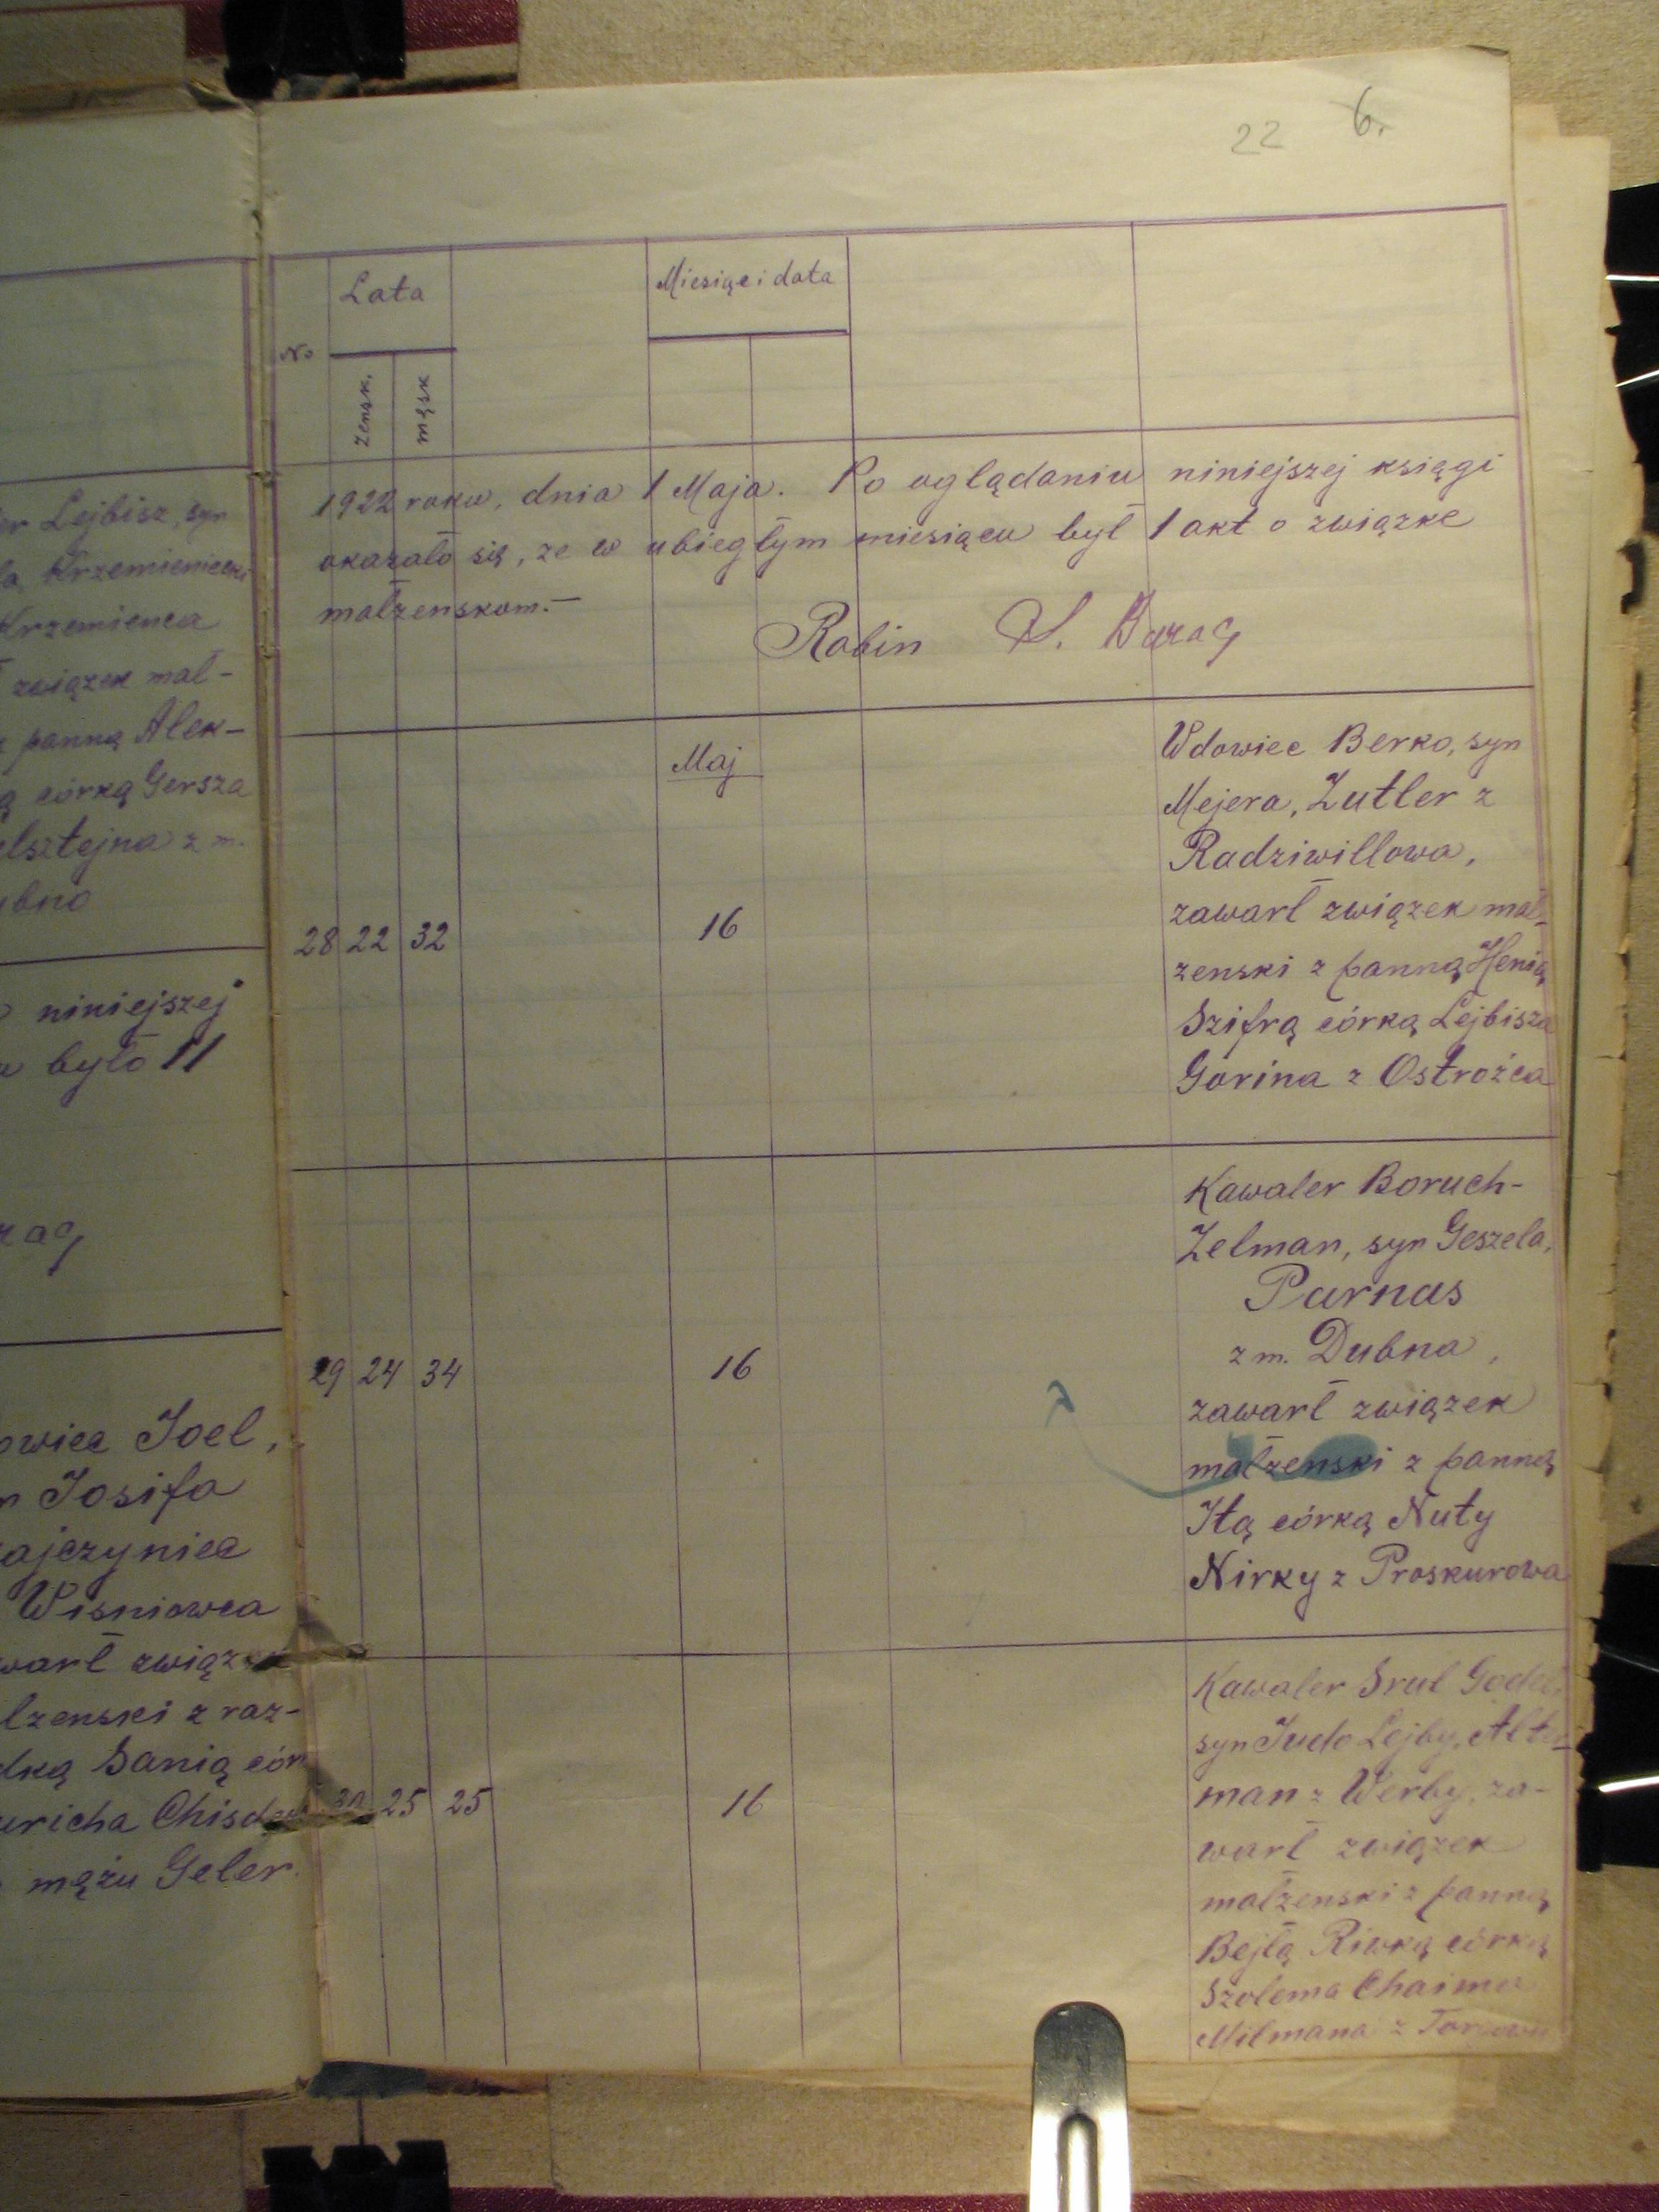 22 6.
Lata
Miesiąc i data
No
żensk.
męsk
1922 roku, dnia 1 Maja. Po oglądaniu niniejszej księgi
okazało się, że w ubiegłym miesiącu był 1 akt o związke
małżenskom.—
Rabin S. Barac
Maj
28 22 32
16
Wdowiec Berko, syn
Mejera, Zutler z
Radziwillowa,
zawarł związek mał-
żenski z panną Henią
Szifrą córką Lejbisza
Gorina z Ostrożca
29 24 34
16
Kawaler Boruch-
Zelman, syn Geszela,
Parnas
z m. Dubna,
zawarł związek
małżenski z panną
Itą córką Nuty
Nirky z Proskurowa
30 25 25
16
Kawaler Srul Godel
syn Judo Lejby, Alter-
man z Werby, za-
warł związek
małżenski z panną
Bejlą Riwką córką
Szolema Chaima
Milmana z
Lejbisz, syn
Krzemieniecki
Krzemienca
związek mał-
panną Alek-
córką Gersza
z m.
niniejszej
było 11
Joel,
Josifa
Wisniowca
związek
z raz-
Sanią cór
mężu Geler.